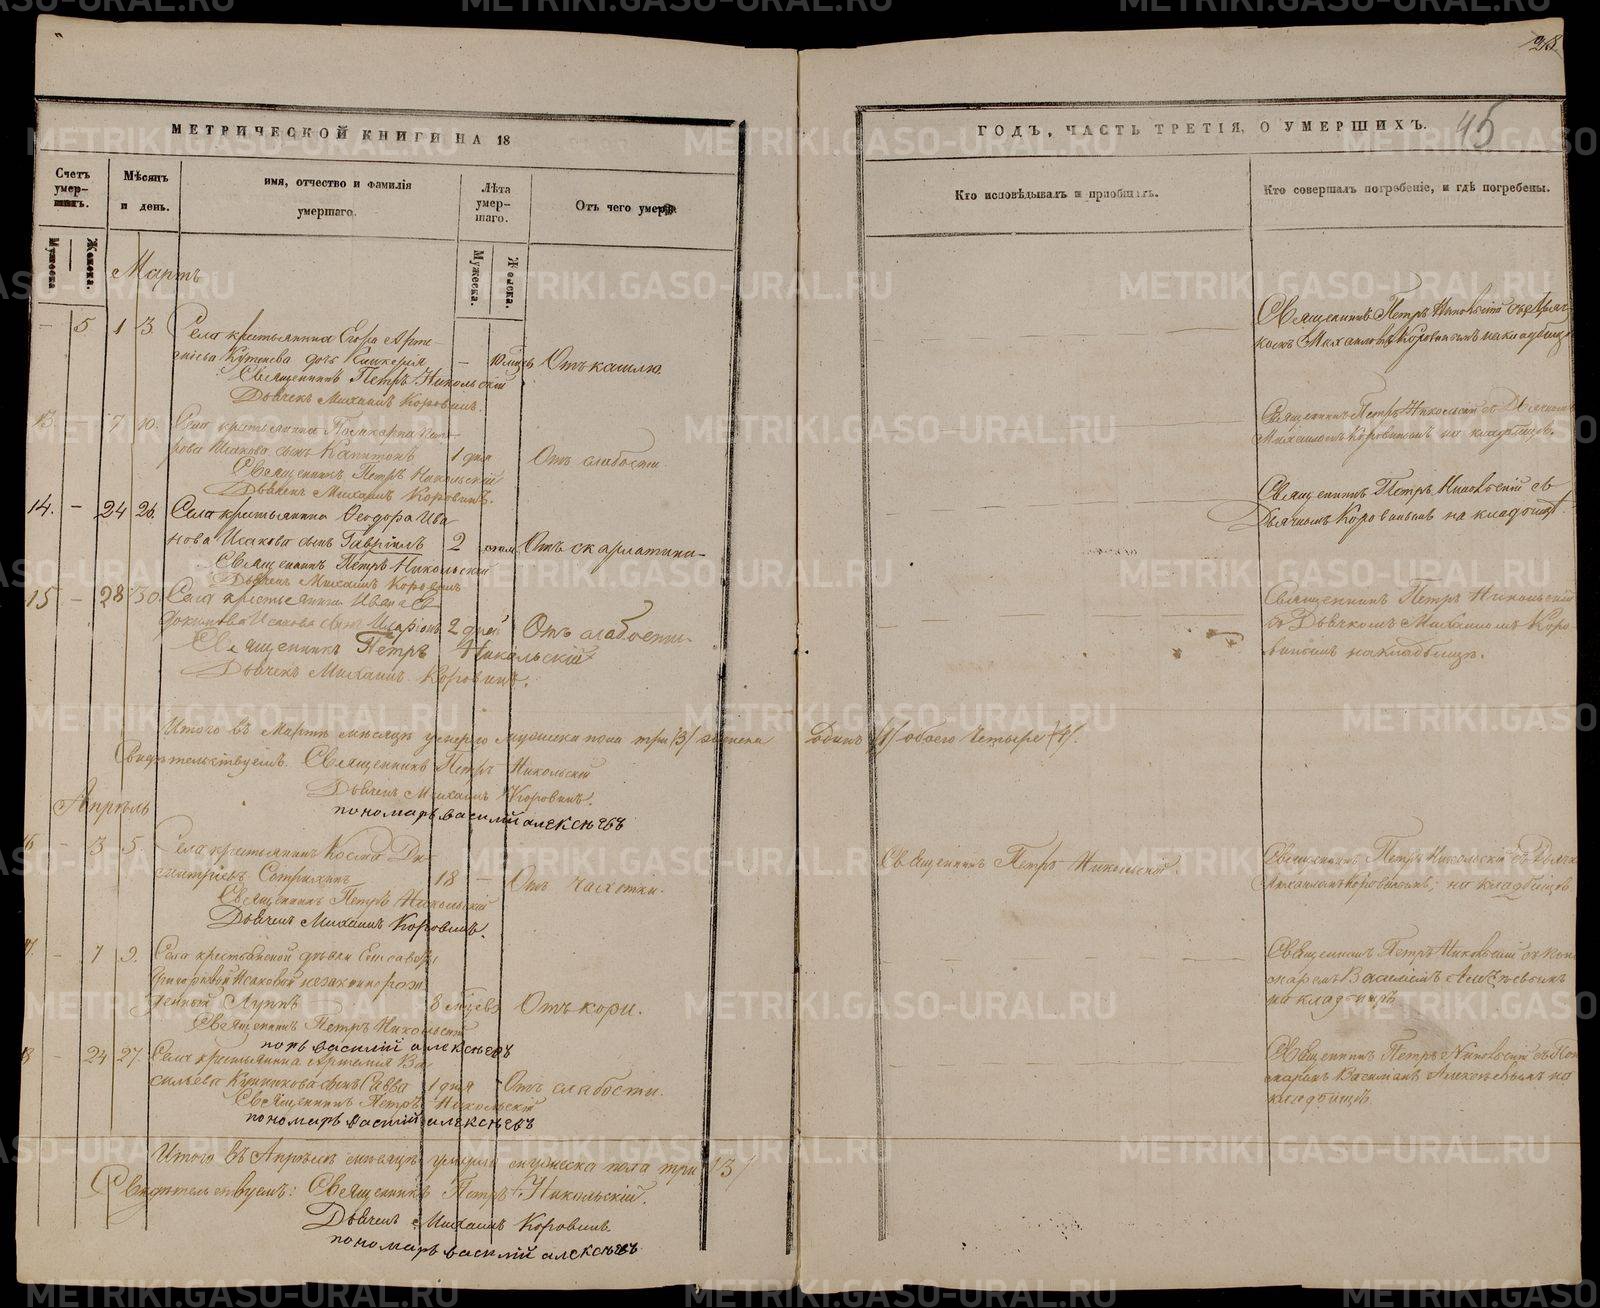 28
45
МЕТРИЧЕСКОЙ КНИГИ НА 18
ГОДЪ, ЧАСТЬ ТРЕТІЯ, О УМЕРШИХЪ.
Счетъ умерших.
Мѣсяцъ и день.
имя, отчество и фамилія умершаго.
Лѣта умершаго.
Отъ чего умеръ.
Кто исповѣдывалъ и приобщалъ.
Кто совершалъ погребеніе, и гдѣ погребены.
Мужеска
Женска.
Мужеска.
Женска.
Мартъ
– 5 1 3. Села крестьянина Егора Арте-
– 10 мцъ Отъ кашлю.
Священникъ Петръ Никольскій
Дьячекъ Михаилъ Коровинъ.
Священникъ Петръ Никольскій съ Дьяч-
комъ Михаиломъ Коровинымъ на кладбище
13. 7 10. Села крестьянина
сынъ Капитонъ 1 дня Отъ слабости
Священникъ Петръ Никольскій
Дьячекъ Михаилъ Коровинъ.
Священникъ Петръ Никольскій съ Дьячкомъ
Михаиломъ Коровинымъ на кладбище.
14. – 24 26. Села крестьянина Ѳеодора Ива
нова Исакова сынъ Гавріилъ 2 Отъ скарлатины
Священникъ Петръ Никольскій
Дьячекъ Михаилъ Коровинъ
Священникъ Петръ Никольскій съ
Дьячкомъ Коровинымъ на кладбищѣ
15 – 28 30. Села крестьянина Ивана
Исакова сынъ Иларіонъ 2 дней Отъ слабости
Священникъ Петръ Никольскій
Дьячекъ Михаилъ Коровинъ.
Священникъ Петръ Никольскій
съ Дьячкомъ Михаиломъ Коро-
винымъ на кладбищѣ.
Итого въ Мартѣ мѣсяцѣ умерло мужеска пола три /3/ женска
одинъ /1/ обоего четыре /4/.
Свидѣтельствуемъ. Священникъ Петръ Никольскій
Дьячекъ Михаилъ Коровинъ.
пономарь василій алексѣевъ
Апрѣль
16 – 3 5. Села крестьянинъ Косма Ди-
митріевъ 18 – Отъ чахотки.
Священникъ Петръ Никольскій
Дьячекъ Михаилъ Коровинъ.
Священникъ Петръ Никольскій.
Священникъ Петръ Никольскій съ Дьячко
Михаиломъ Коровинымъ, на кладбищѣ
17. – 7 9. Села крестьянской дѣвки Елисаветы
Григорьевой Исаковой незаконнорож
денный 8 мцевъ Отъ кори.
Священникъ Петръ Никольскій
пон василий алексѣевъ
Священникъ Петръ Никольскій съ Поно
маремъ Василіемъ Алексѣевымъ
на кладбищѣ
18 – 24 27. Села крестьянина Артемія Ва
сильева сынъ Савва 1 дня Отъ слабости.
Священникъ Петръ Никольскій
пономарь василій алексѣевъ
Священникъ Петръ Никольскій съ Поно
маремъ Василіемъ Алексѣевымъ на
кладбищѣ.
Итого въ Апрѣлѣ мѣсяцѣ умерло мужеска пола три /3/
Свидѣтельствуемъ: Священникъ Петръ Никольскій.
Дьячекъ Михаилъ Коровинъ.
пономарь василій алексѣевъ
METRIKI.GASO-URAL.RU